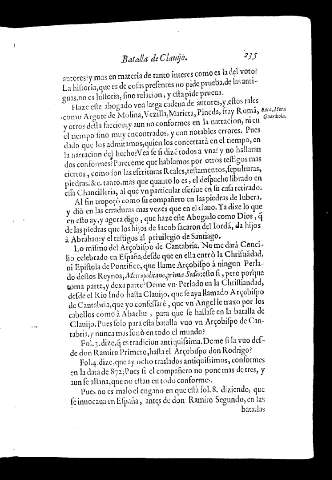 Batalla de Clauijo. 235
autores? y mas en materia de tanto interes como es la del voto?
La historia, que es de cosas presentes no pide prueba, de las anti-
guas, no es historia, sino relacion, y esta pide prueua.
Haze este abogado vna larga cadena de autores, y estos tales
como Argote de Molina, Vezilla, Marieta, Pineda, fray Roma,
y otros desta faccion, y aun no conformes en la narracion, ni en
el tiempo sino muy encontrados, y con notables errores. Pues
dado que los admitamos, quien los concertarà en el tiempo, en
la narracion del hecho? Vea se si dizè todos a vna? y no hallarà
dos conformes? Pareceme que hablamos por otros testigos mas
ciertos, como son las escrituras Reales, testamentos, sepulturas,
piedras, &c. tanto mas que quanto lo es, el despacho librado en
esta Chancilleria, al que vn particular escriue en su casa retirado.
Al fin tropeçò como su compañero en las piedras de Iuberta,
y diò en las erraduras mas vezes que en el clauo. Ya dixe lo que
en esto ay, y agora digo, que haze este Abogado como Dios, q̃
de las piedras que los hijos de Iacob sacaron del Iordã, da hijos
à Abrahan: y el testigos al priuilegio de Santiago.
Lo mismo del Arçobispo de Cantabria. No me darà Conci-
lio celebrado en España, desde que en ella entrò la Christiãdad,
ni Epistola de Pontifice, que llame Arçobispo à ningun Perla-
do destos Reynos, Metropolitano, primæ Sedis, esso si, pero porque
toma parte, y dexa parte? Deme vn Perlado en la Christiandad,
desde el Rio Indo hasta Clauijo, que se aya llamado Arçobispo
de Cantabria, que yo confessarè, que vn Angel le traxo por los
cabellos como à Abacuc, para que se hallasse en la batalla de
Clauijo. Pues solo para esta batalla vuo vn Arçobispo de Can-
tabria, y nunca mas sonò en todo el mundo?
Fol. 4. dize, q̃ es tradicion antiquissima. Deme si la vuo des-
de don Ramiro Primero, hasta el Arçobispo don Rodrigo?
Fol. 4. dize, que ay ocho traslados antiquissimos, conformes
en la data de 872. Pues si el compañero no pone mas de tres, y
aun se allana, que no estan en todo conformes.
Pues no es malo el engaño en que està fol. 8. diziendo, que
se inuocaua en España, antes de don Ramiro Segundo, en las
batallas